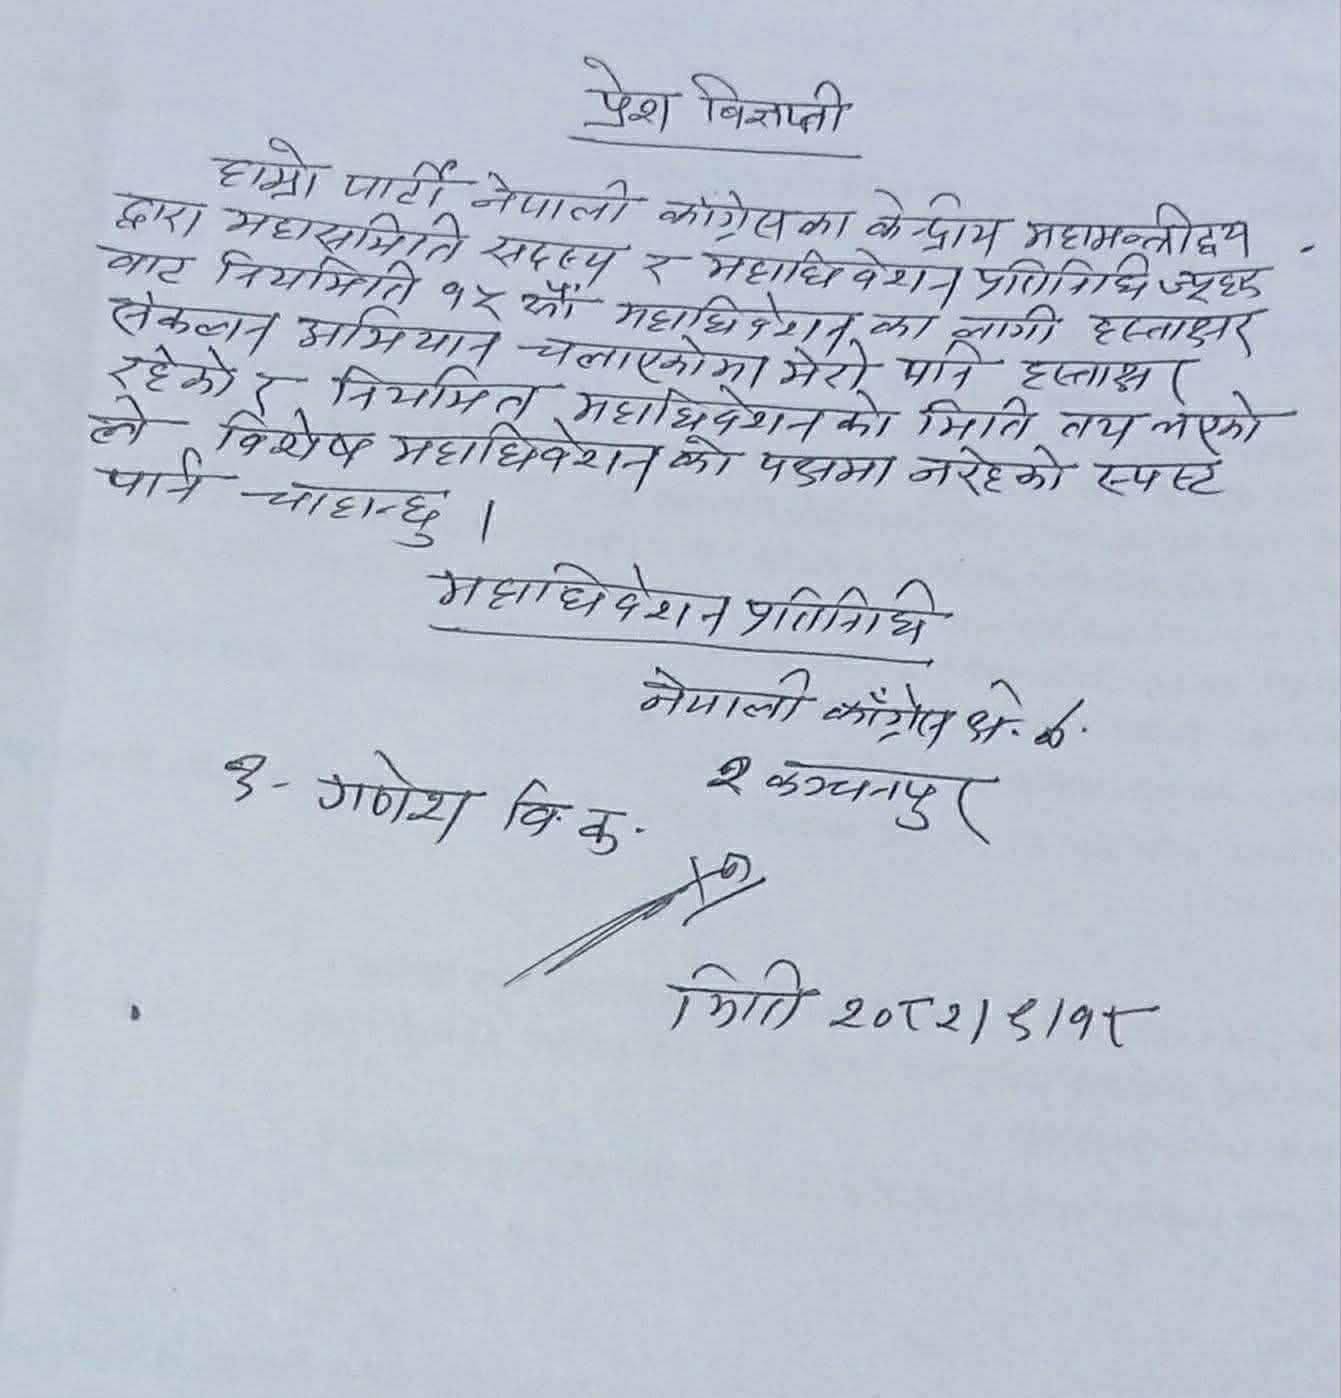 प्रेश विज्ञप्ती
हाम्रो पार्टी नेपाली काँग्रेसका केन्द्रिय महामन्त्रीद्वय
द्वारा महासमिति सदस्य र महाधिवेशन प्रतिनिधि ज्यूहरु
वाट नियमिति १५ औं महाधिवेशन का लागी हस्ताक्षर
संकलन अभियान चलाएकोमा मेरो पनि हस्ताक्षर
रहेको र नियमित महाधिवेशनको मिति तय भएको
ले विशेष महाधिवेशन को पक्षमा नरहेको स्पस्ट
पार्न चाहान्छु ।
महाधिवेशन प्रतिनिधि
नेपाली काँग्रेस क्षे. नं.
२ कञ्चनपुर
१- गणेश वि.क.
मिति २०८२।९।१८